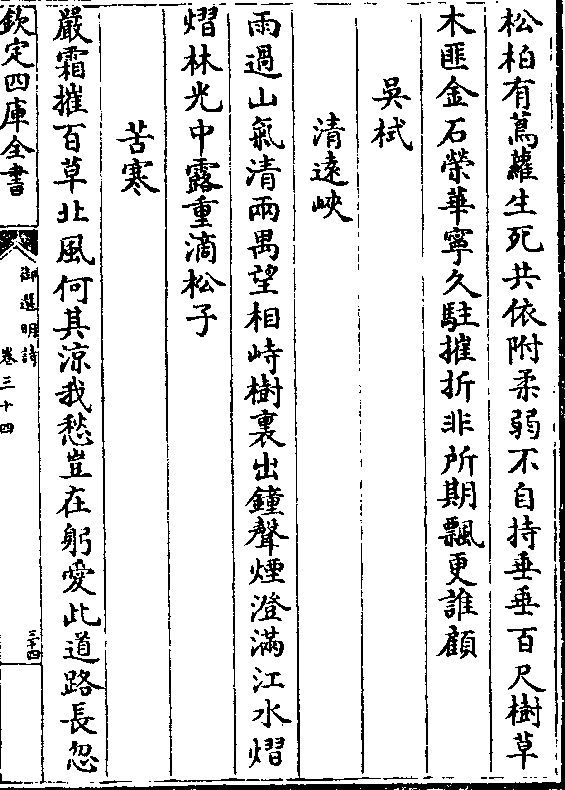 松柏有蔦蘿生死共依附柔弱不自持垂垂百尺樹草
木匪金石榮華寧久駐摧折非所期飄更誰顧
吳栻
清遠峽
雨過山氣清兩禺望相峙樹裏出鐘聲煙澄滿江水熠
熠林光中露重滴松子
苦寒
嚴霜摧百草北風何其涼我愁豈在躬愛此道路長忽
欽定四庫全書
御選明詩
卷三十四
三十四